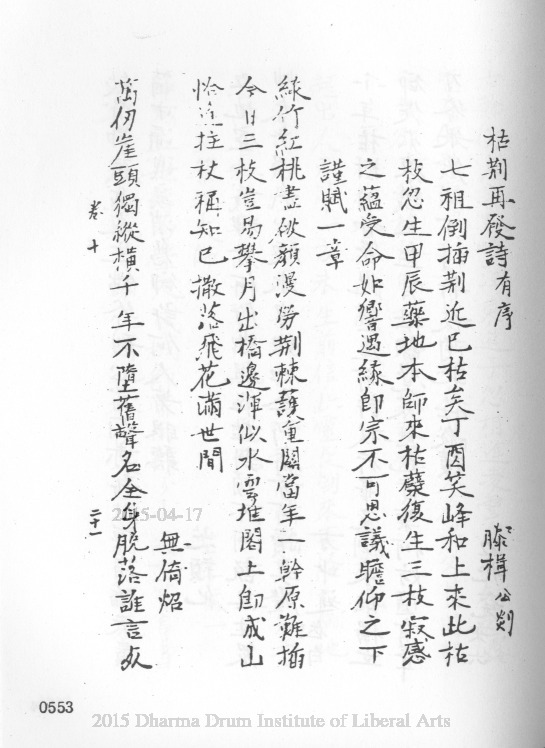 枯荆再發詩有序
滕楫公剡
七祖倒插荆近已枯矣丁酉笑峰和上來此枯
枝忽生甲辰藥地本師來枯蘖復生三枝寂感
之蘊受命如響遇緣卽宗不可思議瞻仰之下
謹賦一章
綠竹紅桃盡破顏漫勞荆棘護重關當年一幹原難插
今日三枝豈易攀月出橋邊渾似水雲堆閣上卽成山
恰逢拄杖稱知已撒落飛花滿世間
無倚炤
萬仞崖頭獨縱橫千年不墮舊聲名全身脫落誰言
卷十 二十一
2015-04-17
0553
2015 Dharma Drum Institute of Liberal Arts